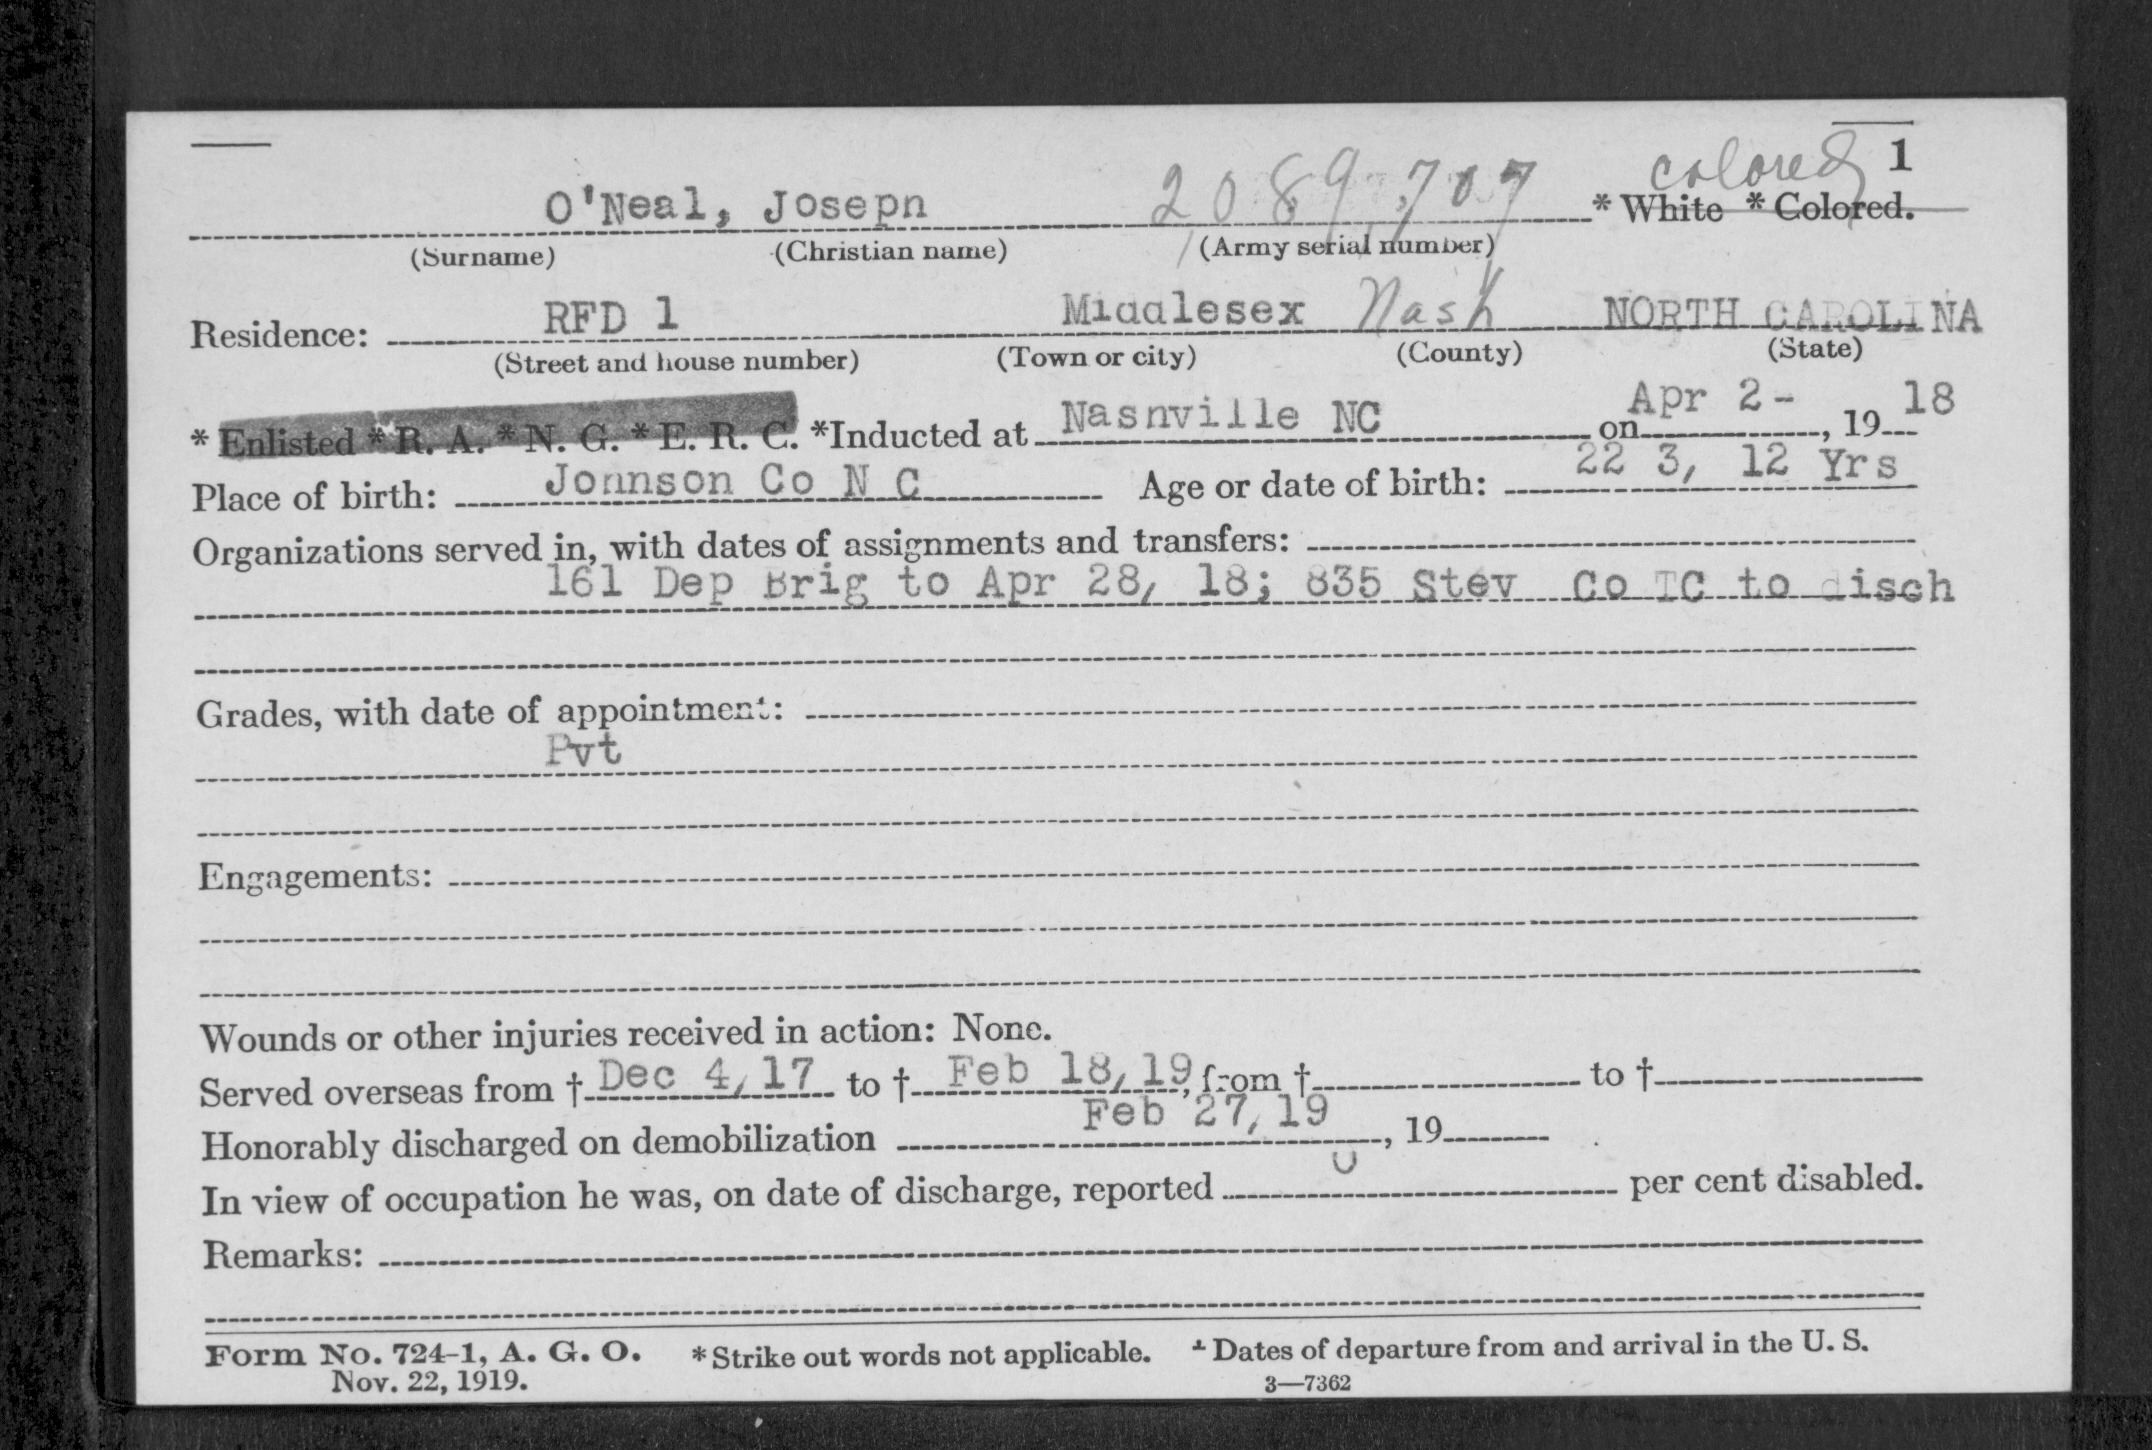 colored 1
O'Neal, Joseph 2,089,707 * White * Colored.
(Surname) (Christian name) (Army serial number)
Residence: RFD 1 Middlesex Nash NORTH CAROLINA
(Street and house number) (Town or city) (County) (State)
* Enlisted * R. A. * N. G. * E. R. C. *Inducted at Nashville NC on Apr 2-, 19 18
Place of birth: Johnson Co N C Age or date of birth: 22 3, 12 Yrs
Organizations served in, with dates of assignments and transfers:
161 Dep Brig to Apr 28, 18; 835 Stev Co TC to disch
Grades, with date of appointment:
Pvt
Engagements:
Wounds or other injuries received in action: None.
Served overseas from † Dec 4, 17 to † Feb 18, 19, from † to †
Honorably discharged on demobilization Feb 27, 19, 19
In view of occupation he was, on date of discharge, reported 0 per cent disabled.
Remarks:
Form No. 724-1, A. G. O. * Strike out words not applicable. † Dates of departure from and arrival in the U. S.
Nov. 22, 1919. 3—7362